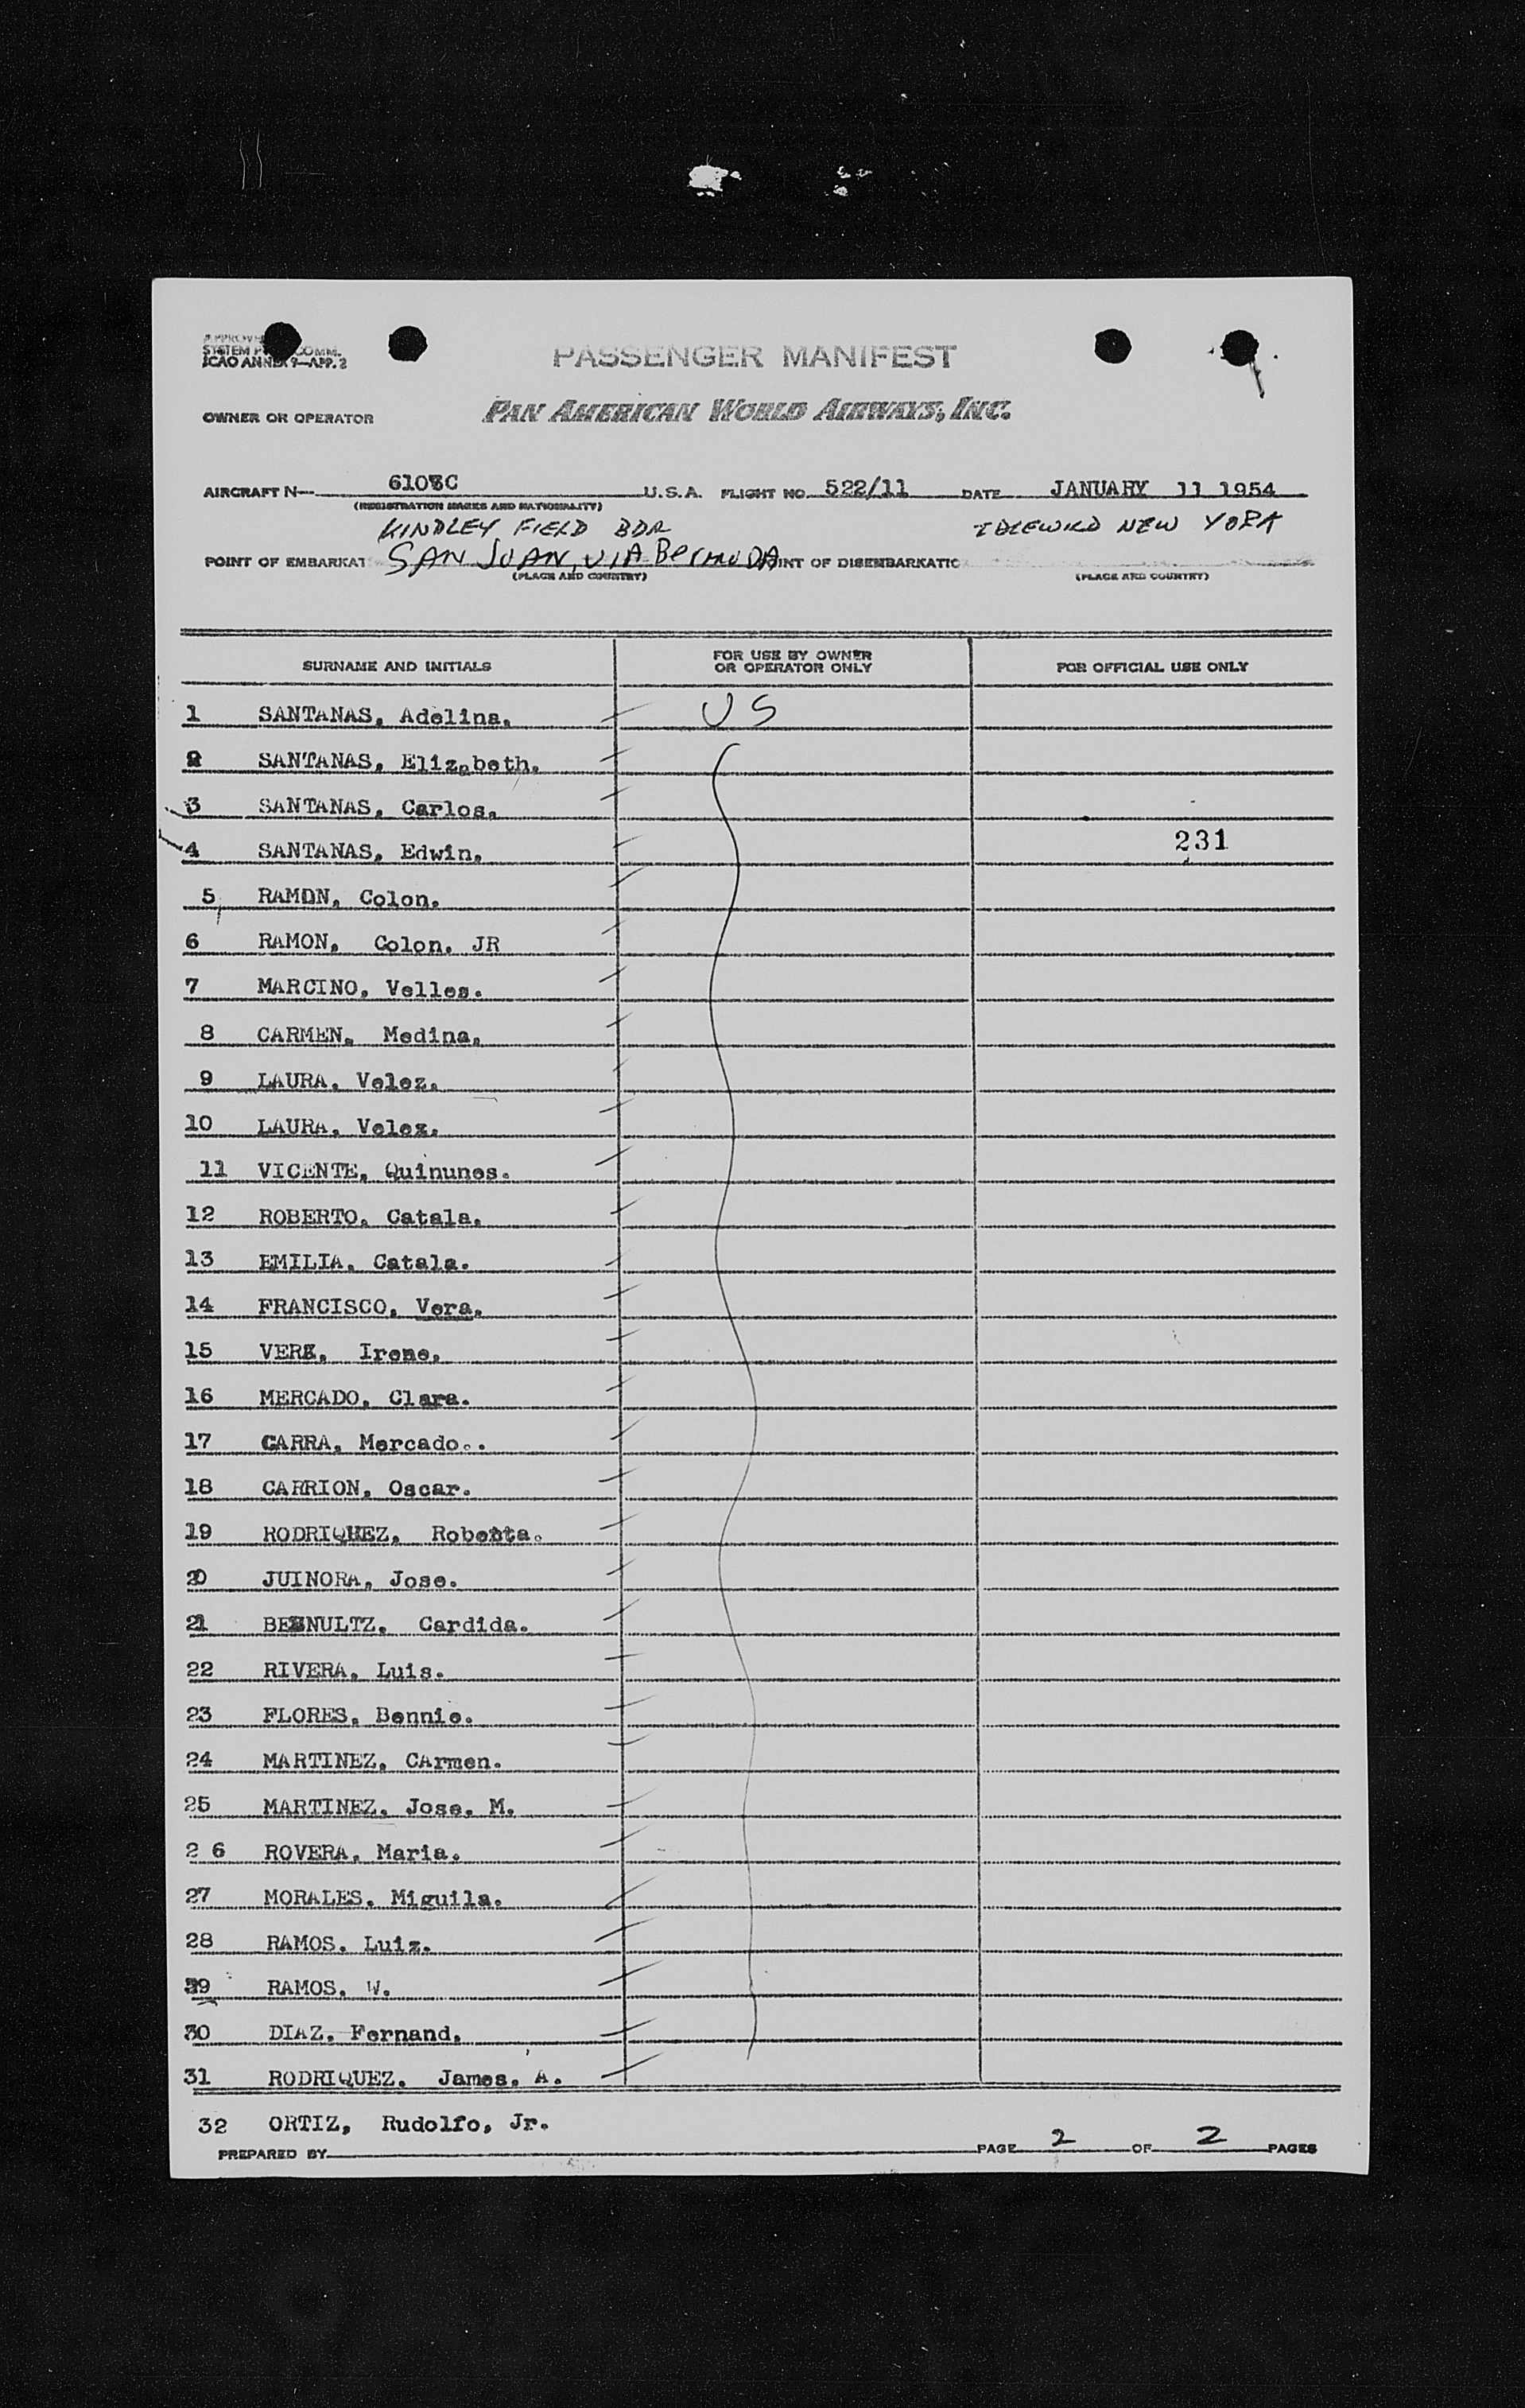 SYSTEM COMM.
ICAO ANNEX 9—APP. 2
PASSENGER MANIFEST
OWNER OR OPERATOR PAN AMERICAN WORLD AIRWAYS, INC.
AIRCRAFT N— U.S.A. FLIGHT NO. 522/11 DATE JANUARY 11 1954
(REGISTRATION MARKS AND NATIONALITY)
KINDLEY FIELD BDA IDLEWILD NEW YORK
POINT OF EMBARKAT SAN JUAN, VIA BERMUDA INT OF DISEMBARKATIC
(PLACE AND COUNTRY) (PLACE AND COUNTRY)
SURNAME AND INITIALS FOR USE BY OWNER OR OPERATOR ONLY FOR OFFICIAL USE ONLY
1 SANTANAS, Adelina. US
2 SANTANAS, Elizabeth.
3 SANTANAS, Carlos.
4 SANTANAS, Edwin. 231
5 RAMON, Colon.
6 RAMON, Colon. JR
7 MARCINO, Velles.
8 CARMEN, Medina.
9 LAURA, Velez.
10 LAURA, Velez.
11 VICENTE, Quinunes.
12 ROBERTO, Catala.
13 EMILIA, Catala.
14 FRANCISCO, Vera.
15 VERA, Irene.
16 MERCADO, Clara.
17 CARRA, Mercado..
18 CARRION, Oscar.
19 RODRIQUEZ, Roberta.
20 JUINORA, Jose.
21 Cardida.
22 RIVERA, Luis.
23 FLORES, Bennie.
24 MARTINEZ, CArmen.
25 MARTINEZ, Jose, M.
2 6 ROVERA, Maria.
27 MORALES, Miguila.
28 RAMOS, Luiz.
29 RAMOS, W.
30 DIAZ, Fernand.
31 RODRIQUEZ, James, A.
32 ORTIZ, Rudolfo, Jr.
PREPARED BY PAGE 2 OF 2 PAGES